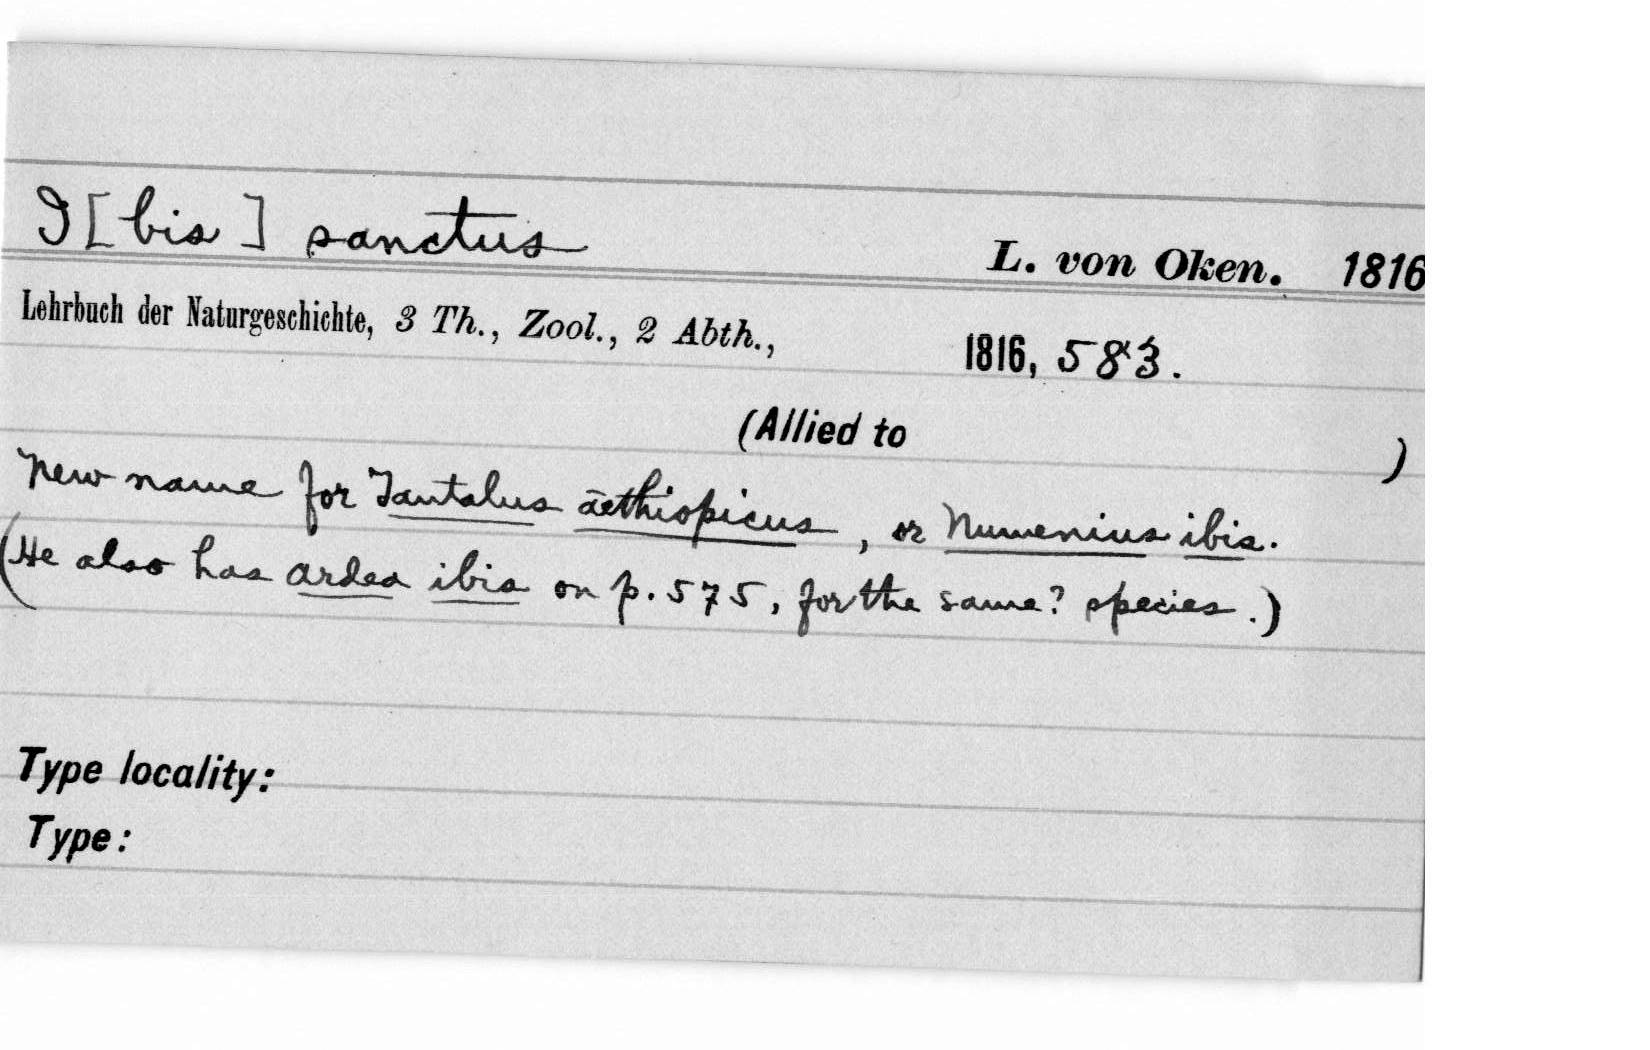 I[bis] sanctus L. von Oken. 1816
Lehrbuch der Naturgeschichte, 3 Th., Zool., 2 Abth., 1816, 583.
(Allied to )
New name for Tantalus aethiopicus, or Numenius ibis.
(He also has Ardea ibis on p. 575, for the same? species.)
Type locality:
Type: